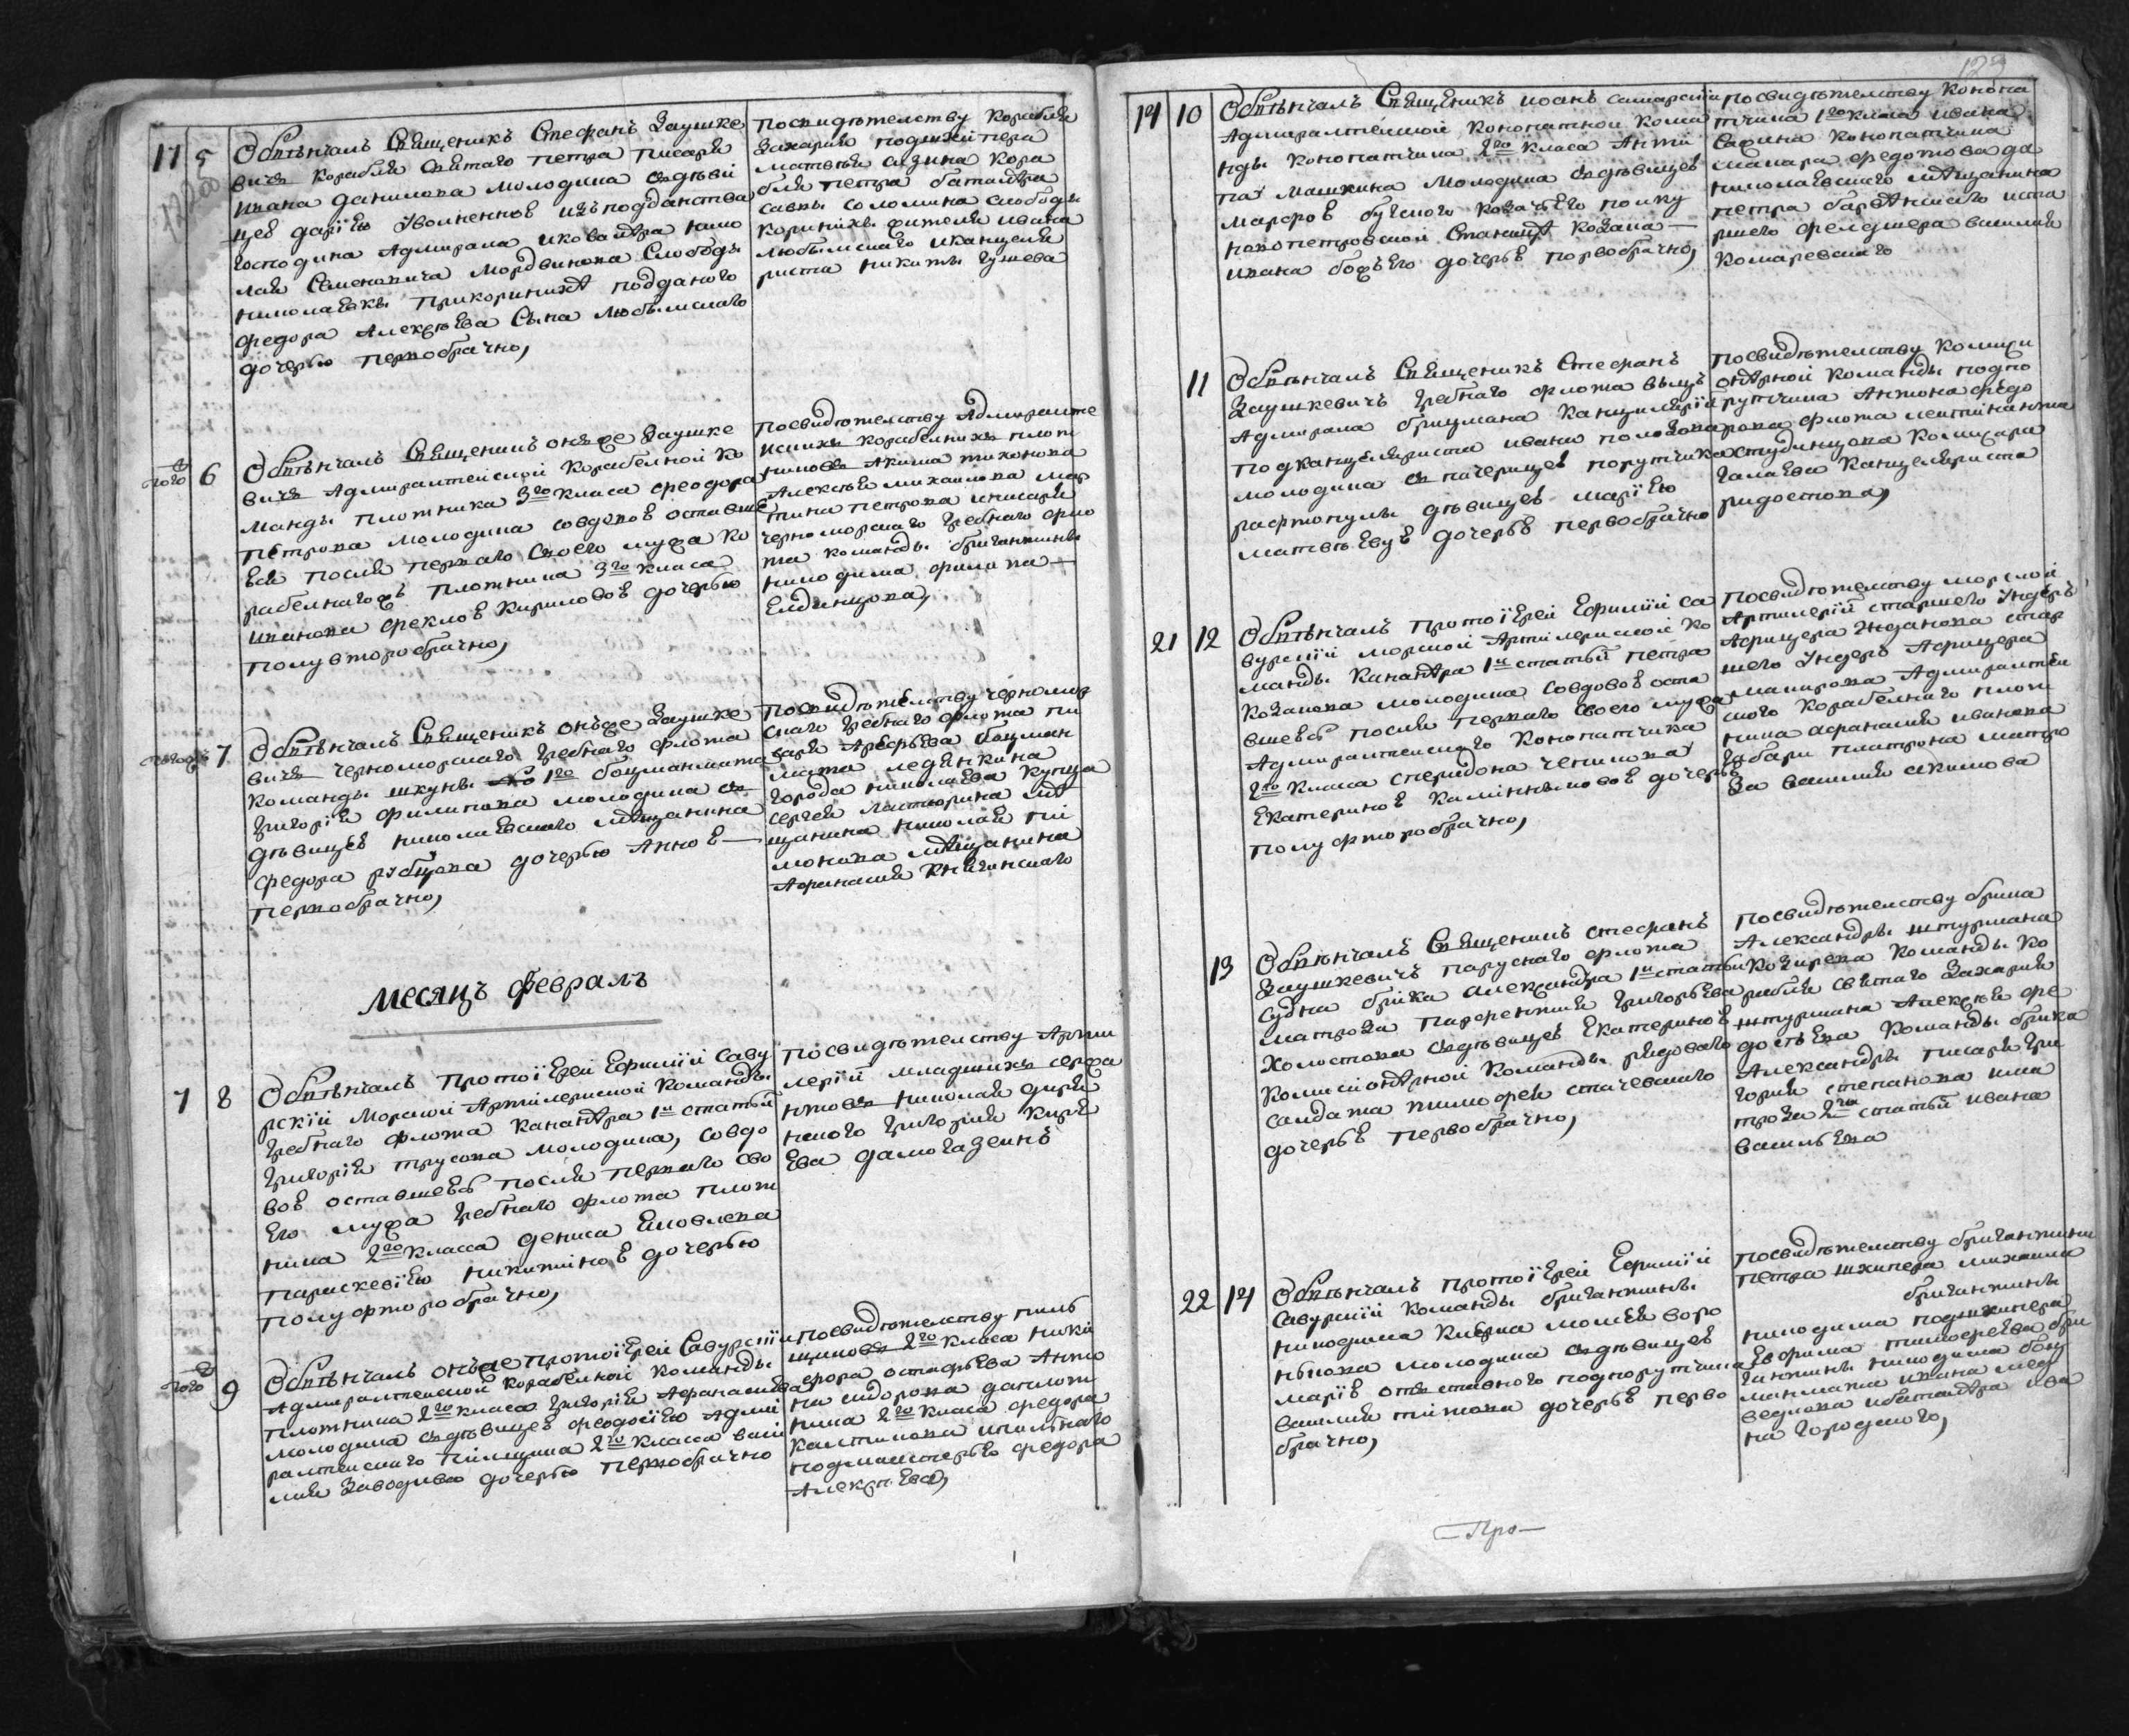 17 5 Обвѣнчалъ Священикъ Стефанъ Заушке
вичъ корабля святаго петра писаря
ивана данилова молодика здѣви
цеѣ дарїею уволненноѣ изъ подданства
господина Адмирала и ковалѣра нико
лая Семеновича мордвинова Слободы
николаевки прикоринихѣ подданого
федора Алексѣева Сына любымскаго
дочерью первобрачно,
посвидѣтелству корабля
Захария подшхипера
матвѣя сизина кора
бля петра баталѣра
савы соломина слободы
коринихи жителя ивана
любымскаго и канцеля
риста никиты гущева
того 6 Обвѣнчалъ Священикъ онъже Заушке
вичъ Адмиралтейской корабелной ко
манды плотника 3го класа феодора
петрова молодика совдовоѣ оставше
вся после перваго своего мужа ко
рабелнагожъ плотника 3го класа
иванова феклоѣ кириловоѣ дочерью
полувторобрачно,
посвидѣтелству Адмиралте
йскихъ корабелнихъ плот
никовъ Акима тихонова
Алексѣя михаилова мар
тина петрова и писаря
черноморскаго гребнаго фло
та команды бригантины
никодима филипа
Елдинцова,
7 Обвѣнчалъ Священикъ онъже Заушке
вичъ черноморскаго гребнаго флота
команды шкуны 1го боцманмата
григорія филипова молодика съ
дѣвицеѣ николаевскаго мѣщанина
федора рубцова дочерью Анноѣ
первобрачно,
посвидѣтелству черномор
скаго гребнаго флота пи
саря Арефьева боцман
мата меденкина
города николаева купца
сергея ластюрина мѣ
щанина николая ти
монова мѣщанина
Афанасия княгинскаго
месяцъ февралъ
7 8 Обвѣнчалъ протоїерей Ефимїй Саву
рскїй Морской Артилериской команды
гребнаго флота канонѣра 1й статьи
григорія трусова молодика, совдо
воѣ оставшеѣся после перваго сво
его мужа гребнаго флота плот
ника 2го класса дениса яковлева
параскевїею никитиноѣ дочерью
полуфторобрачно,
посвидѣтелству Арти
лерїй младшихъ сержа
нтовъ николая дири
нкого григория кире
ева
того 9 Обвѣнчалъ онъже протоїерей Савурскїй
Адмиралтейской корабелной команды
плотника 2го класа григорія Афанасиева
молодика здѣвицеѣ феодосїею Адми
ралтейскаго пилщика 2го класса васи
лия Заводива дочерью первобрачно
посвидѣтелству пиль
щиковъ 2го класа ники
фора остафьева Анто
на сидорова даплот
ника 2го класа федора
калтикова и
подмастерью федора
Алексѣева,
123
14 10 Обвѣнчалъ Священикъ иоанъ самарскїй
Адмиралтейской конопатной кома
нды конопатчика 2го класа Анти
па машкина молодика здѣвицеѣ
марфоѣ бугского козачьего полку
новопетровской станицѣ козака
ивана дочерьѣ первобрачно,
посвидѣтелству конопа
тчика 1го класа ивана
сафина конопатчика
макара федотова да
николаевскаго мѣщанина
петра и ста
ршего фелдшера василия
комаревскаго
11 Обвѣнчалъ Священикъ Стефанъ
Заушкевичъ гребнаго флота вышъ
Адмирала бриммана канцилярїи
подканцеляриста ивана половова
молодика съ пачерицеѣ порутчика
рафтопулы дѣвицеѣ марїею
матвѣевуѣ дочерьѣ первобрачно
посвидѣтелству комиси
онѣрной команды подпо
рутчика Антона федо
рова флота лейтинанта
студинцова комисара
галаева канцеляриста
ридостова,
21 12 Обвѣнчалъ протоїерей Ефимїй са
вурскїй морской Артилериской ко
манды канонѣра 1й статьи петра
козакова молодика совдовоѣ оста
вшеѣся после перваго своего мужа
Адмиралтейскаго конопатчика
2го класа спиридона чепикова
екатериноѣ калинниковоѣ дочерьѣ
полуфторобрачно,
посвидѣтелству морской
Артилерїй старшего ундеръ
Афицера жданова стар
шего ундеръ Афицера
макирова Адмиралтей
ского корабелнаго плот
ника афанасия иванова
платрова матро
за василия екимова
13 Обвѣнчалъ Священикъ стефанъ
Заушкевичъ паруснаго флота
судна брика александра 1й статьи
матроза парфентия григорьева
холостова здѣвицеѣ екатериноѣ
комисионѣрной команды рядоваго
салдата тимофея стачевскаго
дочерьѣ первобрачно,
посвидѣтелству брика
Александры штурмана
козирева команды ко
рабля святаго Захария
штурмана Алексѣя фе
досѣева команды брика
Александры писаря гри
гория степанова и ма
троза 2й статьи ивана
васильева
22 14 Обвѣнчалъ протоїерей Ефимїй
Савурскїй команды бригантины
никодима купера моисѣя воро
нькова молодика здѣвицеѣ
марїѣ отъставного подпорутчика
василия титова дочерьѣ перво
брачно,
посвидѣтелству бригантины
петра шхипера михаила
бригантины
никодима подшхипера
Ефрима тимофѣева бри
гантины никодима боц
манмата ивана мед
ведкова и баталѣра ива
на городского,
—Про—